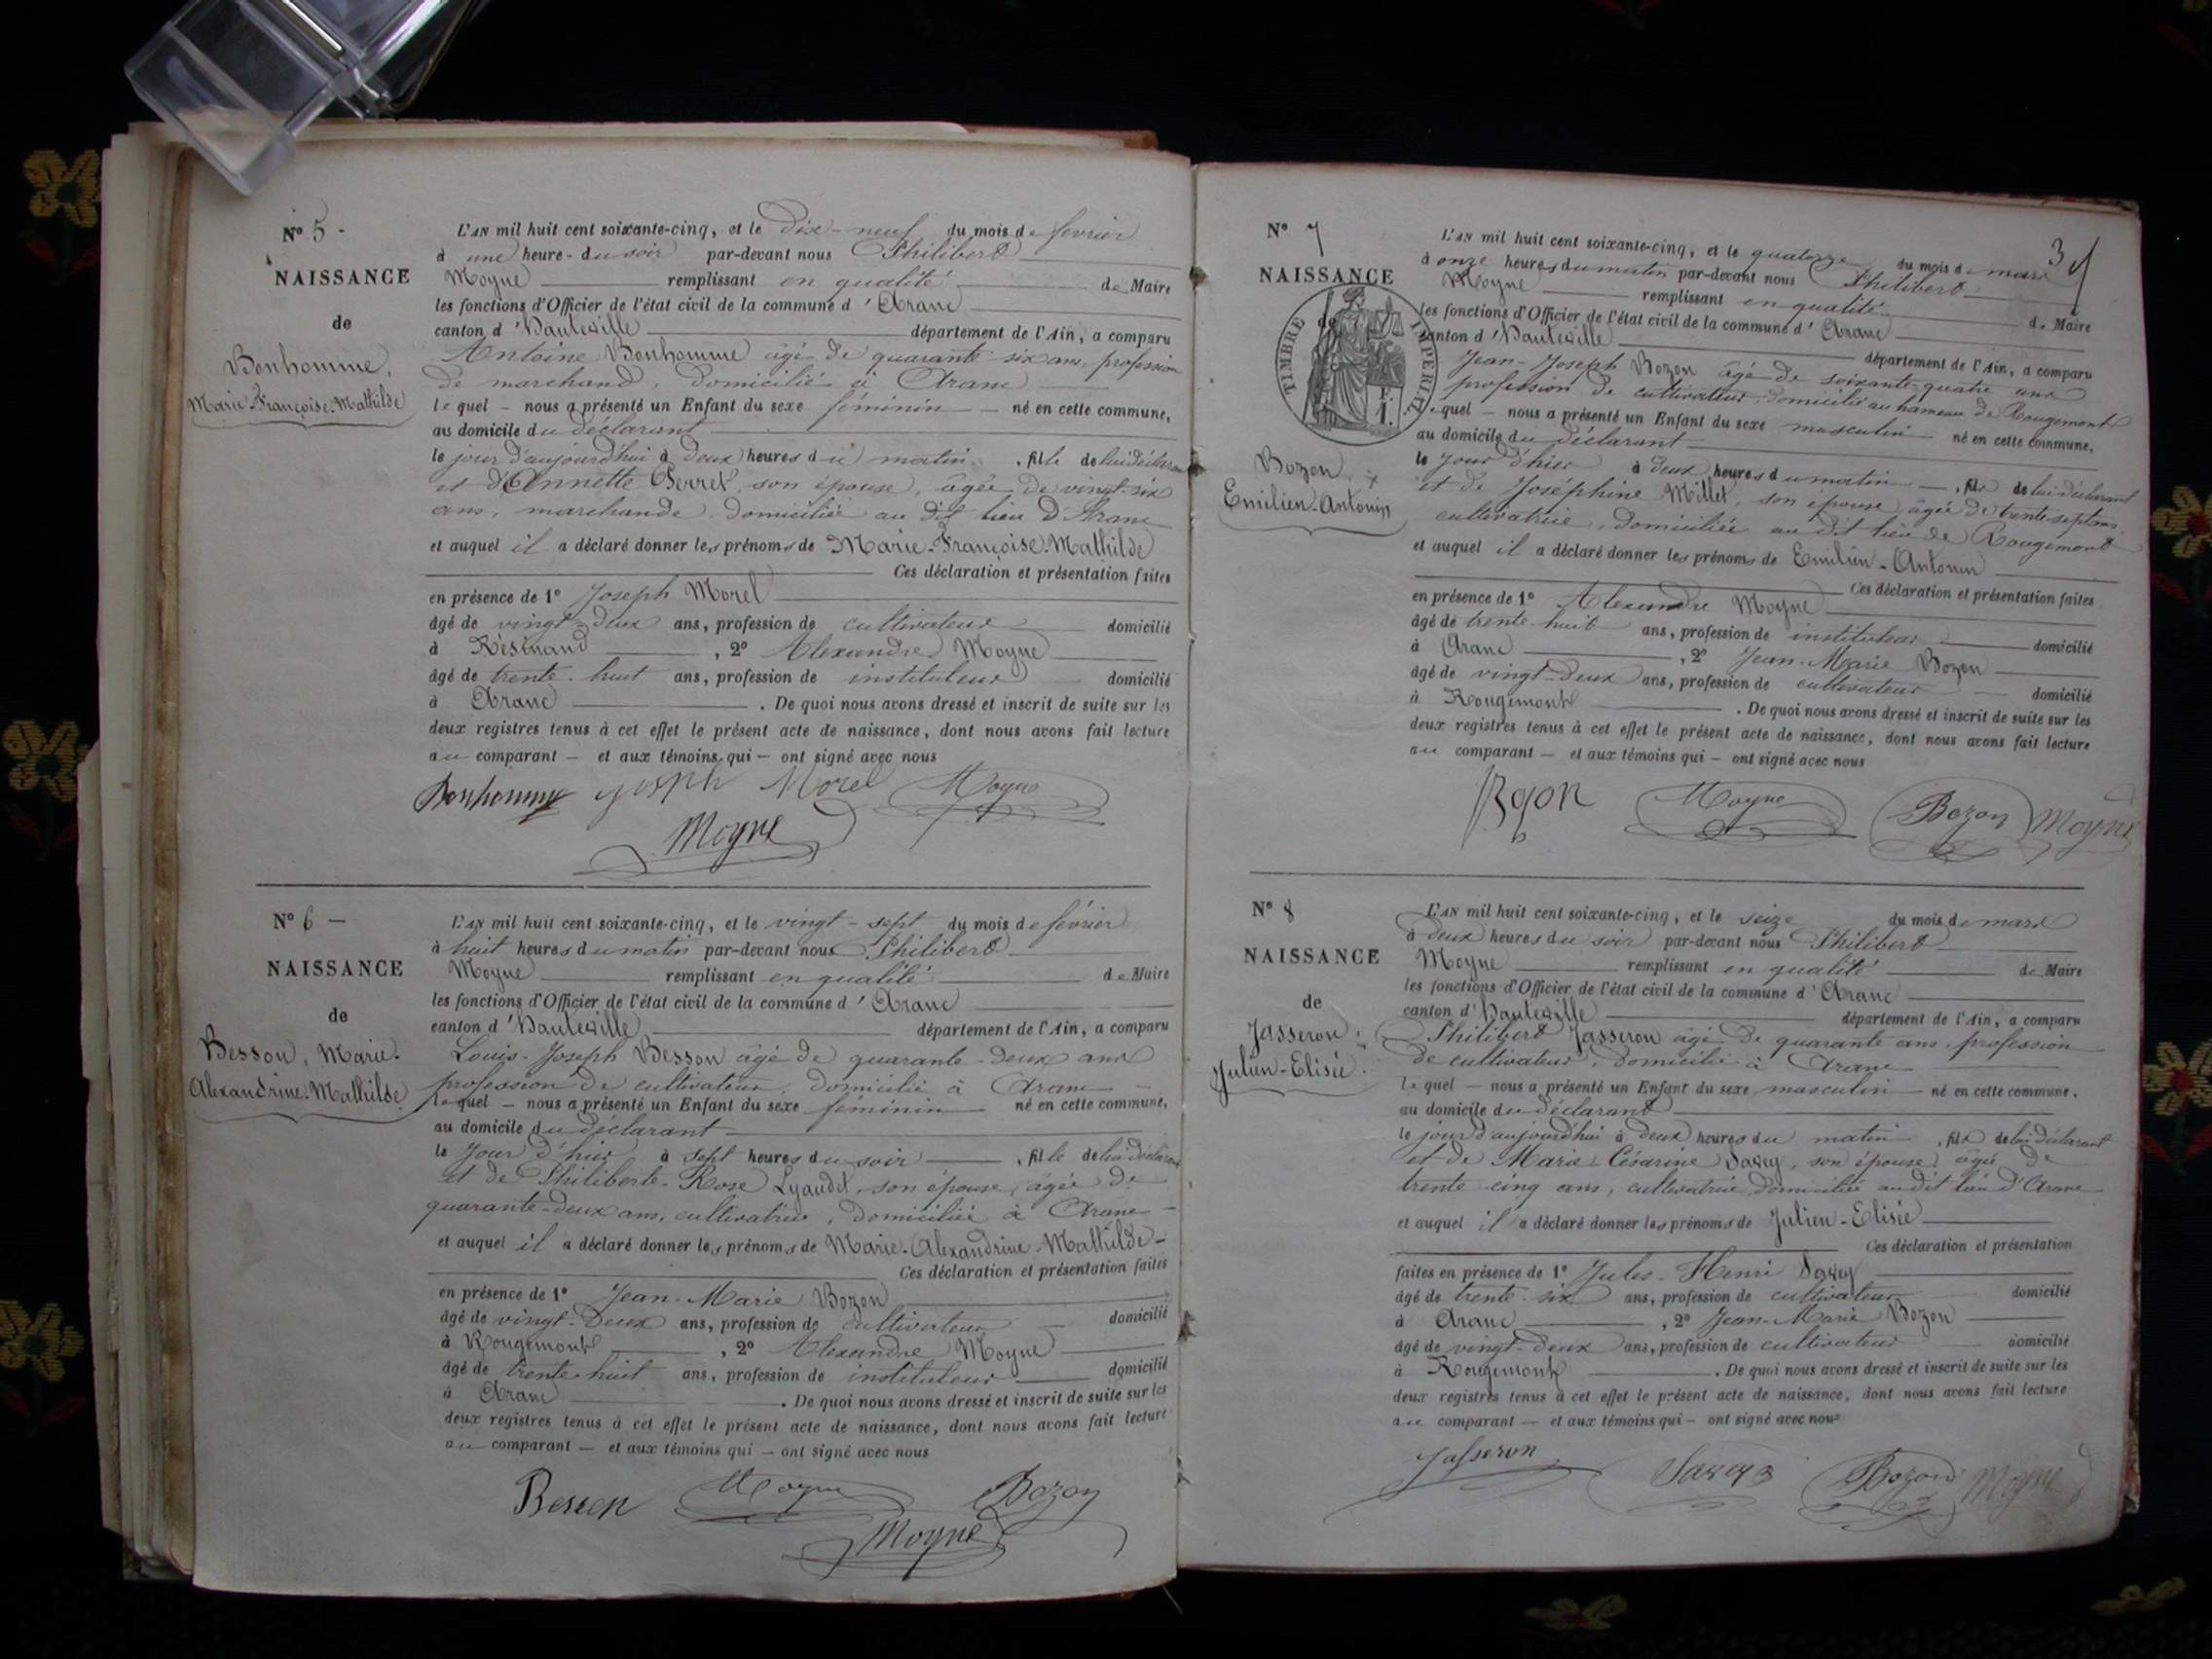 N° 5 -
NAISSANCE
de
Bonhomme,
Marie-Françoise-Mathilde
L'AN mil huit cent soixante-cinq, et le Dix-neuf du mois de février
à une heure - du soir par-devant nous Philibert
Moyne remplissant en qualité de Maire
les fonctions d'Officier de l'état civil de la commune d' Aranc
canton d' Hauteville département de l'Ain, a comparu
Antoine Bonhomme âgé de quarante six ans, profession
de marchand, domicilié à Aranc
lequel - nous a présenté un Enfant du sexe féminin - né en cette commune,
au domicile du déclarant
le jour d'aujourd'hui à deux heures du matin, fille de lui déclarant
et d'Annette Perret, son épouse, âgée de vingt-six
ans, marchande domiciliée au dit lieu d'Aranc
et auquel il a déclaré donner les prénoms de Marie-Françoise-Mathilde
Ces déclaration et présentation faites
en présence de 1° Joseph Morel
âgé de vingt-deux ans, profession de cultivateur domicilié
à Résinand , 2° Alexandre Moyne
âgé de trente-huit ans, profession de instituteur domicilié
à Aranc . De quoi nous avons dressé et inscrit de suite sur les
deux registres tenus à cet effet le présent acte de naissance, dont nous avons fait lecture
au comparant - et aux témoins qui - ont signé avec nous
Bonhomme Joseph Morel Moyne
Moyne
N° 6 -
NAISSANCE
de
Besson, Marie-
Alexandrine-Mathilde
L'AN mil huit cent soixante-cinq, et le vingt-sept du mois de février
à huit heures du matin par-devant nous Philibert
Moyne remplissant en qualité de Maire
les fonctions d'Officier de l'état civil de la commune d' Aranc
canton d' Hauteville département de l'Ain, a comparu
Louis-Joseph Besson âgé de quarante-deux ans
profession de cultivateur, domicilié à Aranc -
lequel - nous a présenté un Enfant du sexe féminin né en cette commune,
au domicile du déclarant
le jour d'hier à sept heures du soir , fille de lui déclarant
et de Philiberte-Rose Lyaudet, son épouse, âgée de
quarante-deux ans, cultivatrice, domiciliée à Aranc -
et auquel il a déclaré donner les prénoms de Marie-Alexandrine-Mathilde -
Ces déclaration et présentation faites
en présence de 1° Jean-Marie Bozon
âgé de vingt-deux ans, profession de cultivateur domicilié
à Rougemont , 2° Alexandre Moyne
âgé de trente-huit ans, profession de instituteur domicilié
à Aranc . De quoi nous avons dressé et inscrit de suite sur les
deux registres tenus à cet effet le présent acte de naissance, dont nous avons fait lecture
au comparant - et aux témoins qui - ont signé avec nous
Besson Moyne Bozon
Moyne
3
N° 7
NAISSANCE
de
TIMBRE IMPERIAL
Bozon,
Emilien-Antonin
L'AN mil huit cent soixante-cinq, et le quatorze du mois de mars
à onze heures du matin par-devant nous Philibert
Moyne remplissant en qualité de Maire
les fonctions d'Officier de l'état civil de la commune d' Aranc
canton d' Hauteville département de l'Ain, a comparu
Jean-Joseph Bozon âgé de soixante-quatre ans
profession de cultivateur domicilié au hameau de Rougemont
lequel - nous a présenté un Enfant du sexe masculin né en cette commune,
au domicile du déclarant
le jour d'hier à deux heures du matin - , fils de lui déclarant
et de Joséphine Millet, son épouse, âgée de trente-sept ans,
cultivatrice, domiciliée au dit lieu de Rougemont
et auquel il a déclaré donner les prénoms de Emilien-Antonin
Ces déclaration et présentation faites
en présence de 1° Alexandre Moyne
âgé de trente-huit ans, profession de instituteur domicilié
à Aranc , 2° Jean-Marie Bozon
âgé de vingt-deux ans, profession de cultivateur domicilié
à Rougemont . De quoi nous avons dressé et inscrit de suite sur les
deux registres tenus à cet effet le présent acte de naissance, dont nous avons fait lecture
au comparant - et aux témoins qui - ont signé avec nous
Moyne Bozon Moyne
N° 8
NAISSANCE
de
Jasseron,
Julien-Elisée.
L'AN mil huit cent soixante-cinq, et le seize du mois de mars
à deux heures du soir par-devant nous Philibert
Moyne remplissant en qualité de Maire
les fonctions d'Officier de l'état civil de la commune d' Aranc
canton d' Hauteville département de l'Ain, a comparu
Philibert Jasseron âgé de quarante ans, profession
de cultivateur, domicilié à Aranc
lequel - nous a présenté un Enfant du sexe masculin - né en cette commune,
au domicile du déclarant
le jour d'aujourd'hui à deux heures du matin , fils de lui déclarant
et de Marie-Césarine Savey, son épouse, âgée de
trente-cinq ans, cultivatrice, domiciliée au dit lieu d'Aranc
et auquel il a déclaré donner les prénoms de Julien-Elisée
Ces déclaration et présentation
faites en présence de 1° Jules-Henri Savey
âgé de trente-six ans, profession de cultivateur domicilié
à Aranc , 2° Jean-Marie Bozon
âgé de vingt-deux ans, profession de cultivateur domicilié
à Rougemont . De quoi nous avons dressé et inscrit de suite sur les
deux registres tenus à cet effet le présent acte de naissance, dont nous avons fait lecture
au comparant - et aux témoins qui - ont signé avec nous
Jasseron Savey Bozon Moyne